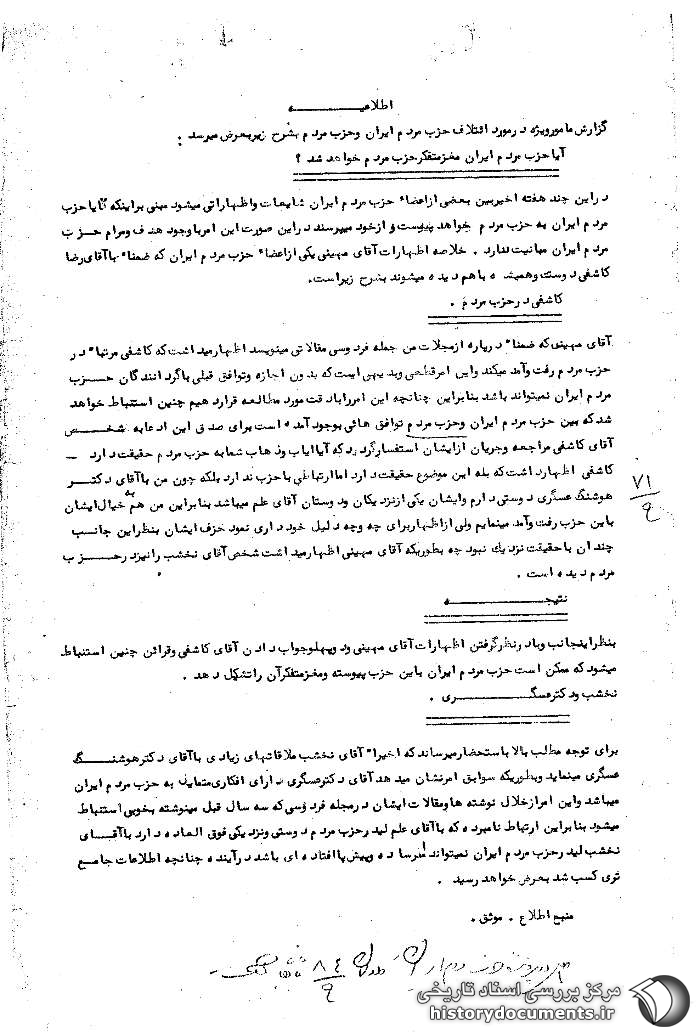 اطلاعیـــــــــــــه
گزارش مامورویژه درمورد ائتلاف حزب مردم ایران وحزب مردم بشرح زیربعرض میرسد :
آیا حزب مردم ایران مغزمتفکرحزب مردم خواهد شد ؟
دراین چند هفته اخیربین بعضی ازاعضاء حزب مردم ایران شایعات واظهاراتی میشود مبنی براینکه آیا حزب
مردم ایران به حزب مردم خواهد پیوست و ازخود میپرسند دراین صورت این امرباوجود هدف ومرام حزب
مردم ایران مباینت ندارد . خلاصه اظهارات آقای مهینی یکی ازاعضاء حزب مردم ایران که ضمناً باآقای رضا
کاشفی دوست وهمیشه باهم دیده میشوند بشرح زیراست.
کاشفی درحزب مردم .
آقای مهینی که ضمناً درپاره ازمجلات من جمله فردوسی مقالاتی مینویسد اظهارمیداشت که کاشفی مرتباً در
حزب مردم رفت وآمد میکند واین امرقطعی وبدیهی است که بدون اجازه وتوافق قبلی باگردانندگان حـــزب
مردم ایران نمیتواند باشد بنابراین چنانچه این امررابادقت مورد مطالعه قراردهیم چنین استنباط خواهد
شد که بین حزب مردم ایران وحزب مردم توافق هائی بوجود آمده است برای صدق این ادعا به شخـــص
آقای کاشفی مراجعه وجریان ازایشان استفسارگردید که آیا ایاب وذهاب شما به حزب مردم حقیقت دارد ـ
کاشفی اظهارداشت که بله این موضوع حقیقت دارد اما ارتباطی باحزب ندارد بلکه چون من باآقای دکتـر
هوشنگ عسگری دوستی دارم وایشان یکی ازنزدیکان ودوستان آقای علم میباشد بنابراین من هم به خیال ایشان
باین حزب رفت وآمد مینمایم ولی ازاظهاربرای چه وچه دلیل خود داری نمود حرف ایشان بنظراین جانـب
چندان باحقیقت نزدیك نبود چه بطوریکه آقای مهینی اظهارمیداشت شخص آقای نخشب رانیزدرحـــزب
مردم دیده است .
نتیجـــــــــــــه
بنظراینجانب وبادرنظرگرفتن اظهارات آقای مهینی ودوپهلوجواب دادن آقای کاشفی وقرائن چنین استنباط
میشود که ممکن است حزب مردم ایران باین حزب پیوسته ومغزمتفکرآن راتشکیل دهد .
نخشب ودکترعسگـــــــری .
برای توجه مطلب بالا باستحضارمیرساند که اخیراً آقای نخشب ملاقاتهای زیادی باآقای دکترهوشنـــگ
عسگری مینماید وبطوریکه سوابق امرنشان میدهد آقای دکترعسگری دارای افکاری متمایل به حزب مردم ایران
میباشد واین امرازخلال نوشته ها ومقالات ایشان درمجله فردوسی که سه سال قبل مینوشته بخوبی استنباط
میشود بنابراین ارتباط نامبرده که باآقای علم لیدرحزب مردم دوستی ونزدیکی فوق العاده دارد باآقـــای
نخشب لیدرحزب مردم ایران نمیتواند امرساده وپیش پاافتاده ای باشد درآینده چنانچه اطلاعات جامع
تری کسب شد بعرض خواهد رسید .
منبع اطلاع . موثق .
۷۱
۹
۸٤
۹
مرکز بررسی اسناد تاریخی
historydocuments.ir